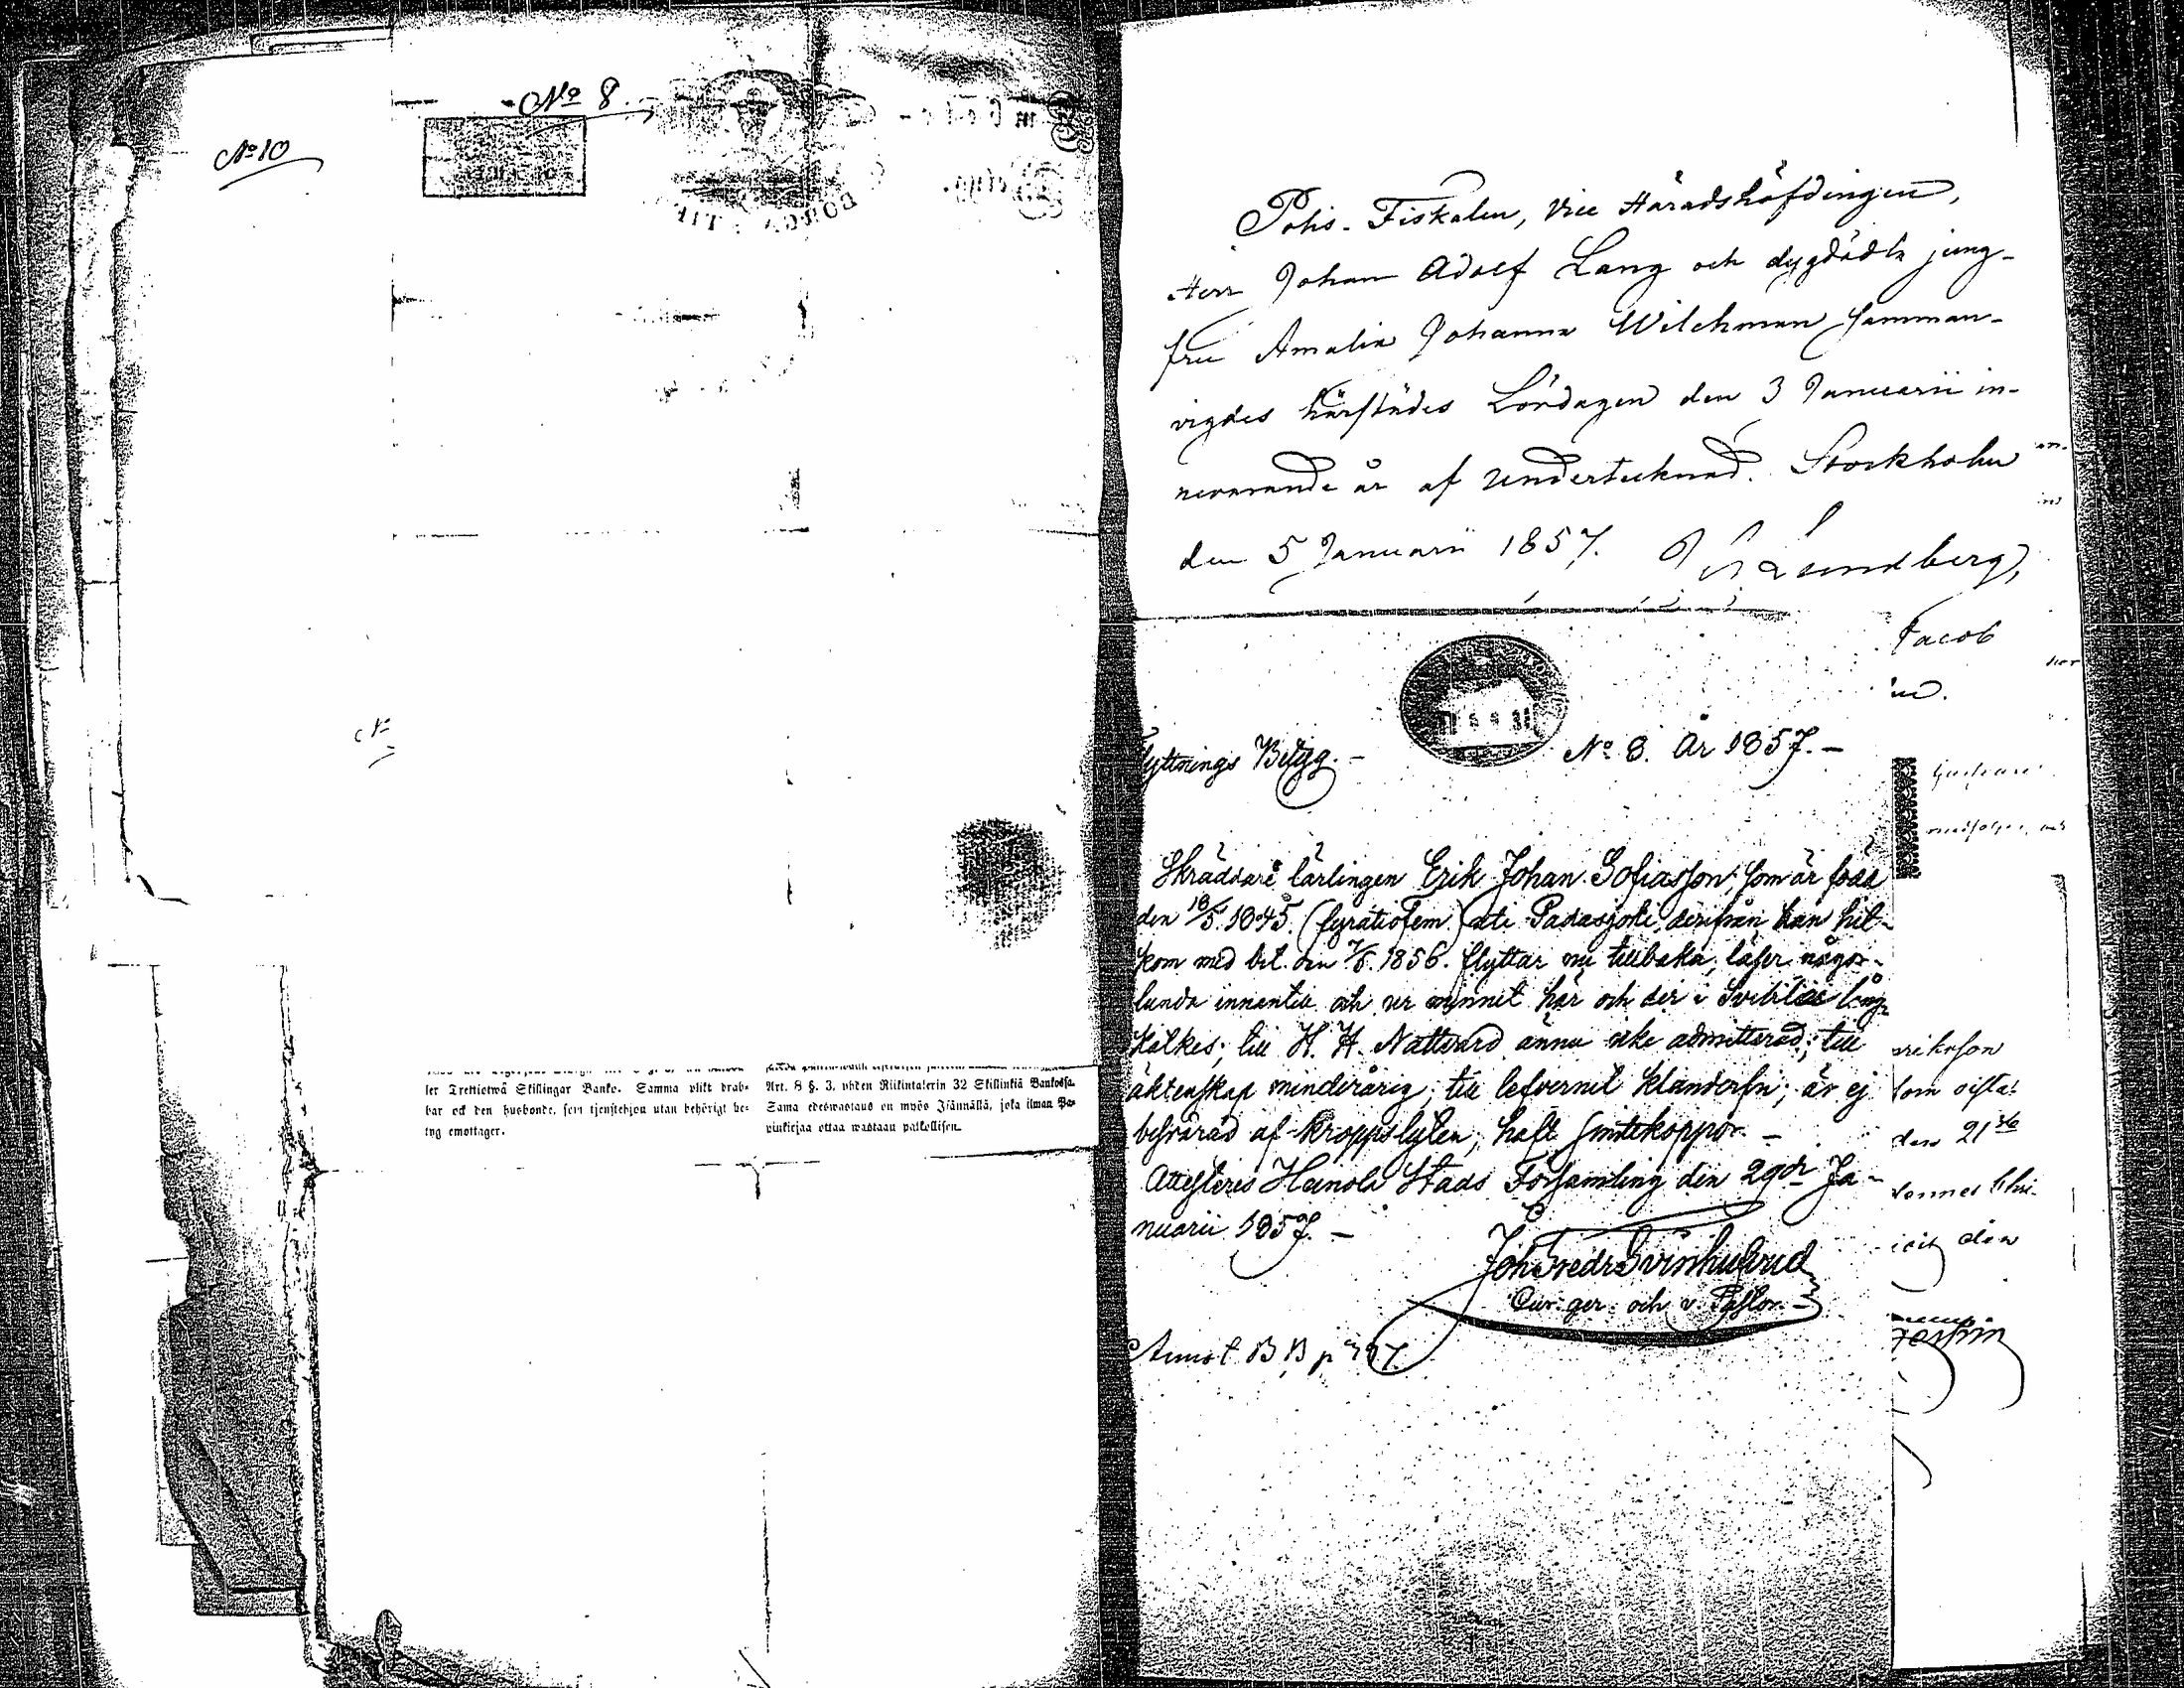 No 10
No 8.
ler Trettiotwå Skillingar Banko. Samma plikt drab-
bar ock den husbonde, som tjenstehjon utan behörigt be-
tyg emottager.
Art. 8 §. 3. yhden Riikintalerin 32 Skillinkiä Bankossa.
Sama edeswastaus on myös Isännällä, joka ilman Pa-
pinkirjaa ottaa wastaan palkollisen.
Polis-Fiskalen, Vice Häradshöfdingen,
Herr Johan Adolf Lang och dygdädla jung-
fru Amalia Johanna Wilckman samman-
vigdes härstädes Lördagen den 3 Januarii in-
nevarande år af undertecknad. Stockholm
den 5 Januarii 1857. Lundberg,
Flyttnings Betyg. - No 8. År 1857. -
Skräddare lärlingen Erik Johan Sofiasson, som är född
den 18/5 1845. (fyratiofem) uti Padasjoki, derifrån han hit-
kom med bet. den 7/6 1856. flyttar nu tillbaka, läser någor-
lunda innantill och ur minnet här och der i Svebilii lång-
katkes; till H. H. Nattvard ännu icke admitterad; till
äktenskap minderårig; till lefvernet klanderfri; är ej
besvärad af kroppslyten; haft smittkoppor. -
Attesteras Heinola Stads Församling den 29de Ja-
nuarii 1857. -
Joh Fredr Svinhufvud
Cur. ger. och v. Pastor. -
Annot. B B p
Jacob
medföljer, och
eriksson
den 21
den